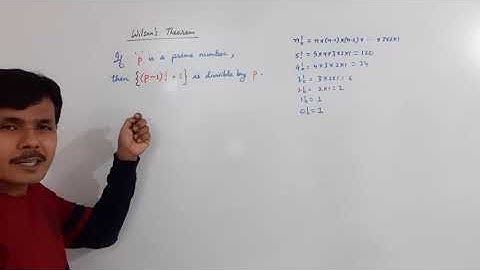 Wilson's Theorem
If 'p' is a prime number,
then {(p-1)! + 1} is divisible by p.
n! = n×(n-1)×(n-2)× ... ×3×2×1
5! = 5×4×3×2×1 = 120
4! = 4×3×2×1 = 24
3! = 3×2×1 = 6
2! = 2×1 = 2
1! = 1
0! = 1